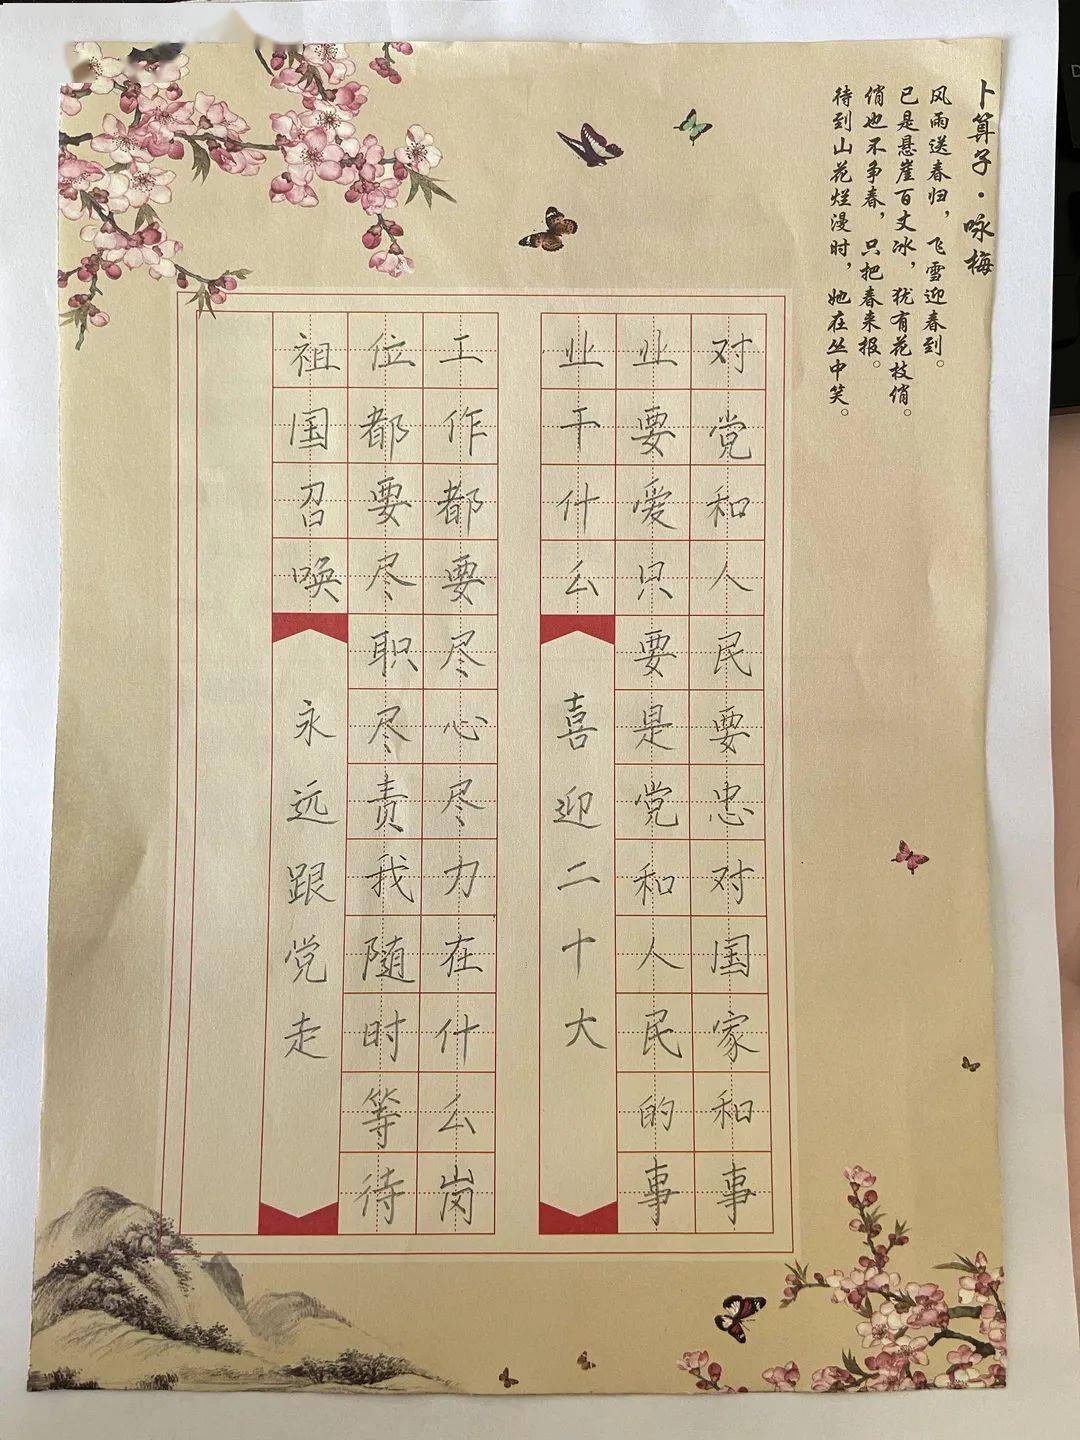 卜算子·咏梅
风雨送春归，飞雪迎春到。
已是悬崖百丈冰，犹有花枝俏。
俏也不争春，只把春来报。
待到山花烂漫时，她在丛中笑。
对党和人民要忠对国家和事
业要爱只要是党和人民的事
业干什么
喜迎二十大
工作都要尽心尽力在什么岗
位都要尽职尽责我随时等待
祖国召唤
永远跟党走